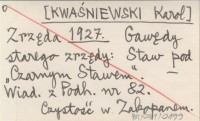 [KWAŚNIEWSKI Karol]
Zrzęda 1927. Gawędy
starego zrzędy: Staw pod
„Czarnym Stawem”. —
Wiad. z Podh. nr 32.
Czystość w Zakopanem.